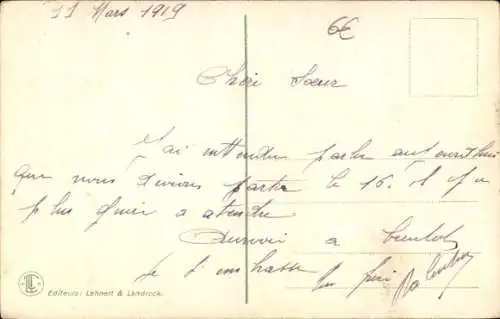 11 Mars 1919
6€
Chère Soeur
J'ai entendu parler aujourd'hui
que nous devions partir le 16. il y a
plus guère a atendre
Aurevoir a bientot
Je t'embrasse
ton frère Valentin
LL
Editeurs: Lehnert & Landrock.